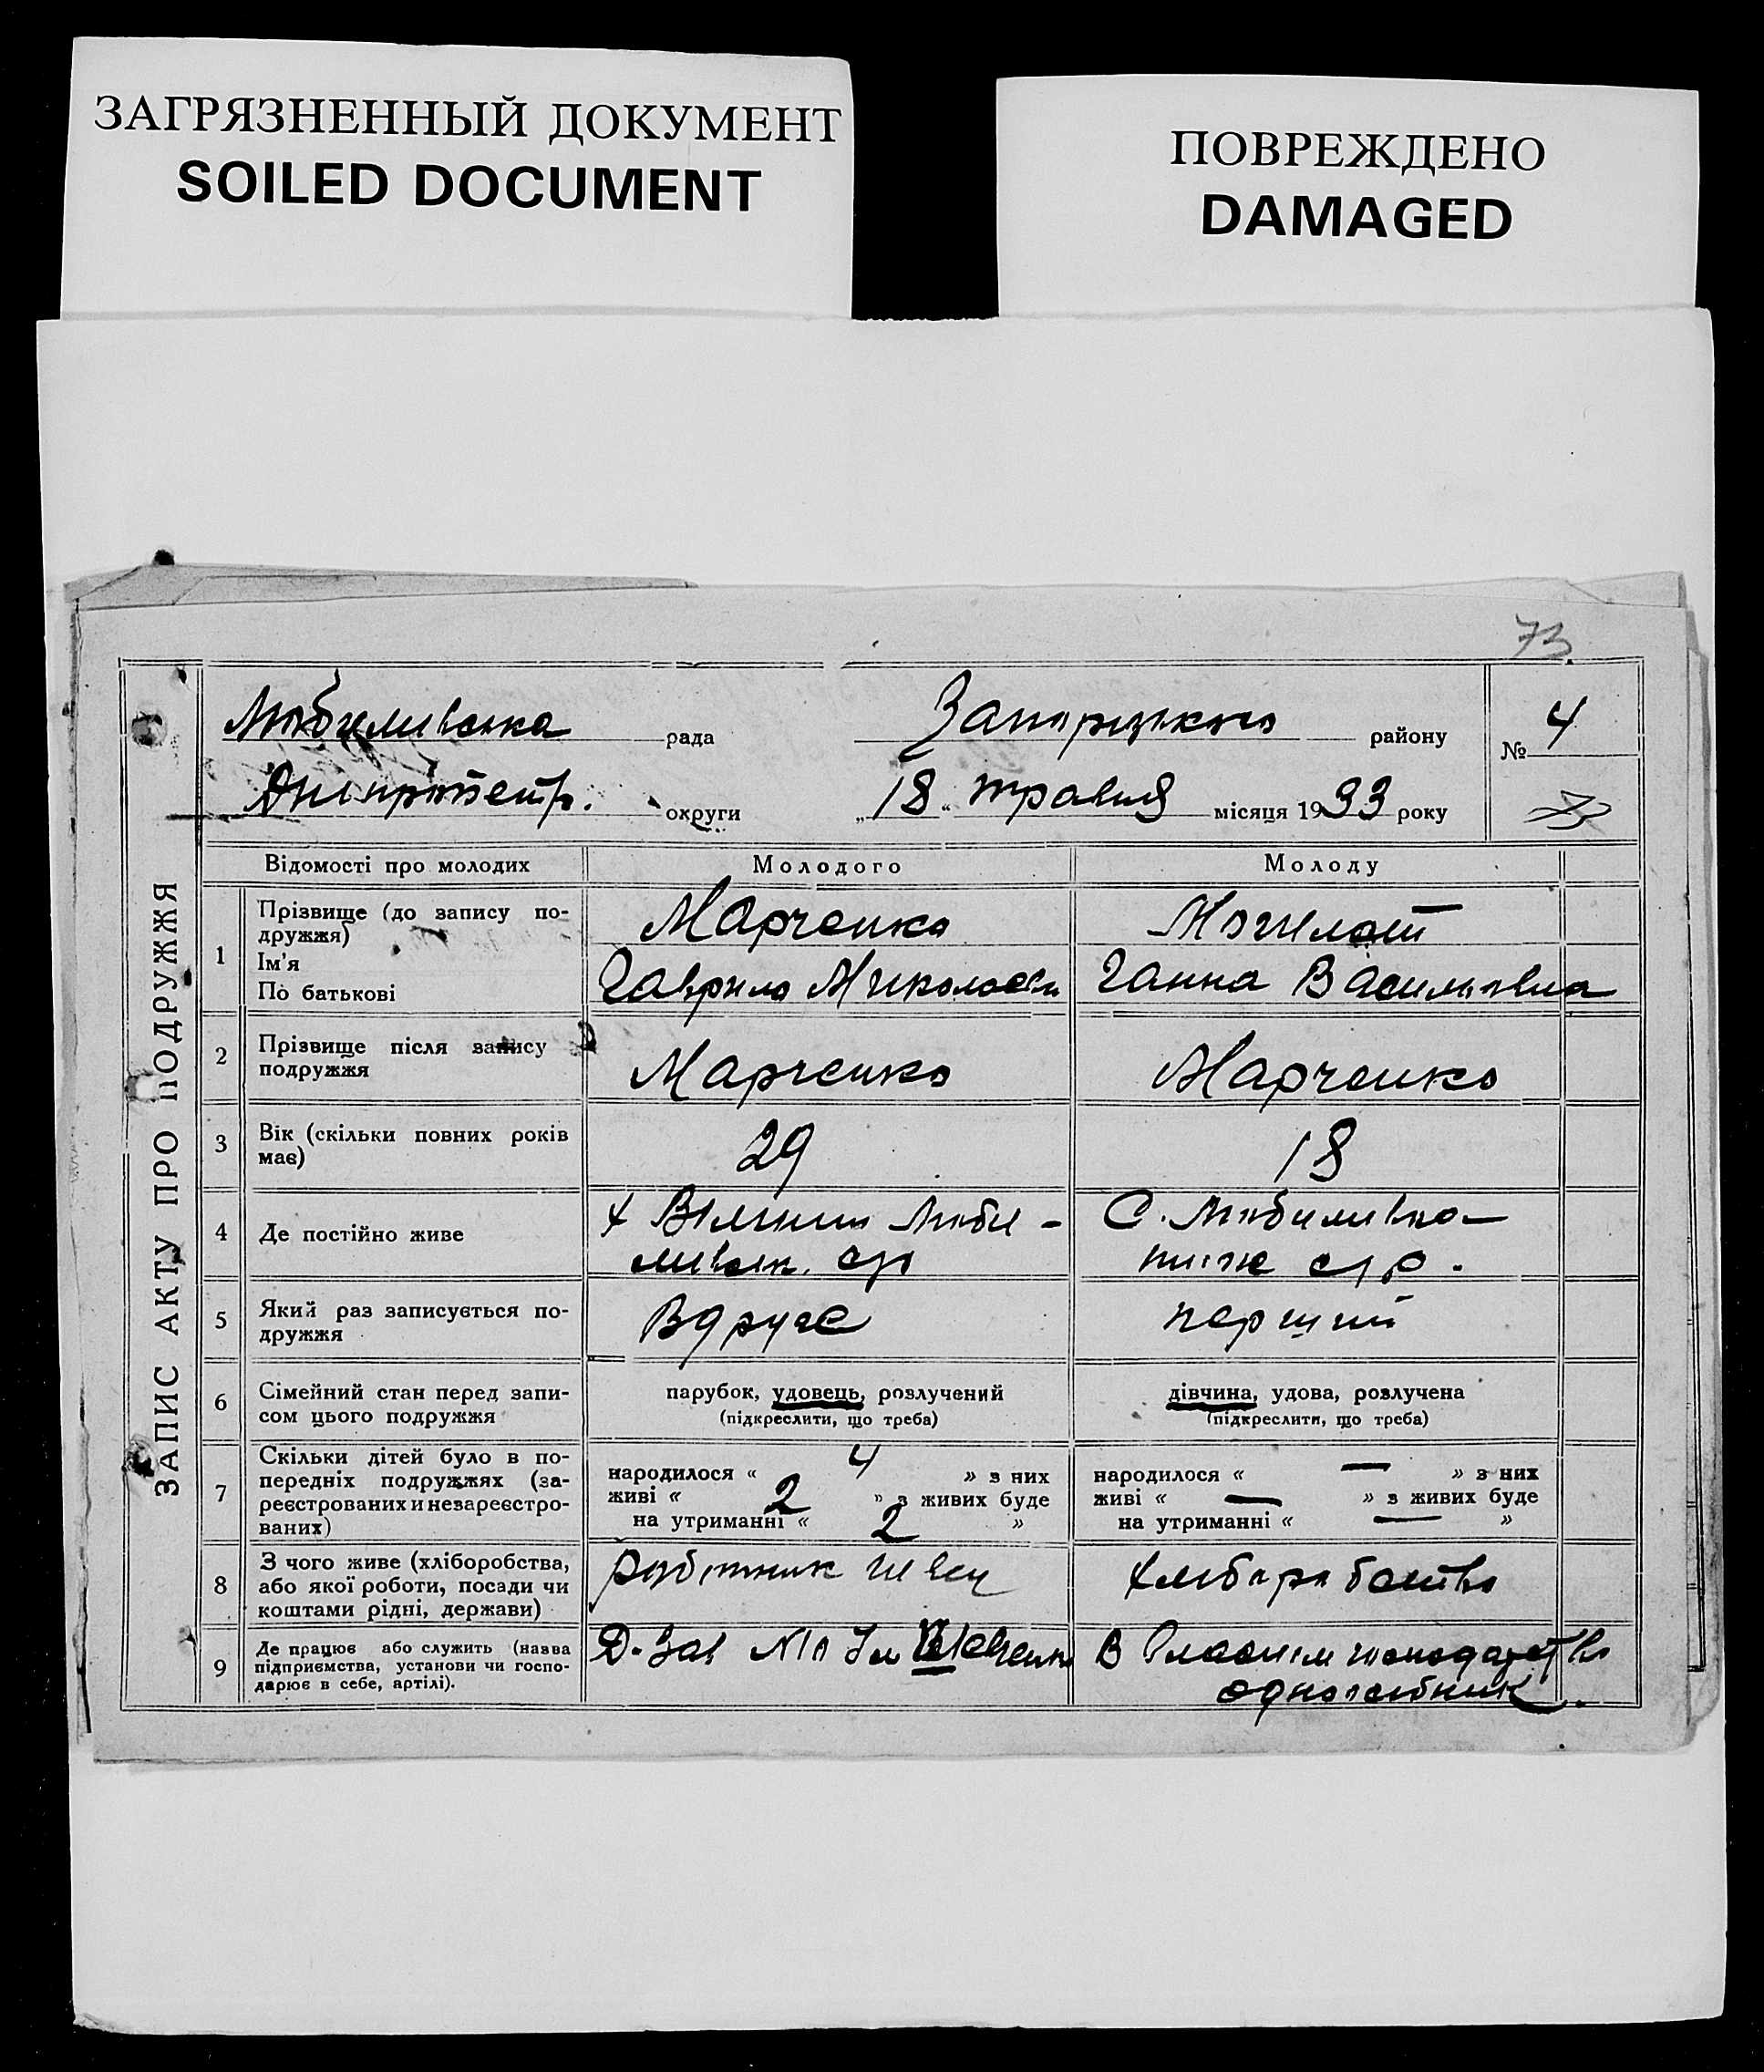 ЗАГРЯЗНЕННЫЙ ДОКУМЕНТ
SOILED DOCUMENT
ПОВРЕЖДЕНО
DAMAGED
73
ЗАПИС АКТУ ПРО ПОДРУЖЖЯ
Любимивська рада
району
№ 4
Дніпропетр. округи
„18“ травня місяця 1933 року
Відомості про молодих
Молодого
Молоду
1
Прізвище (до запису по-
дружжя)
Ім'я
По батькові
Марченко
Гаврило
Ганна Василівна
2
Прізвище після запису
подружжя
Марченко
Марченко
3
Вік (скільки повних років
має)
29
18
4
Де постійно живе
х
с/р
С.
с/р.
5
Який раз записується по-
дружжя
Вдруге
перший
6
Сімейний стан перед запи-
сом цього подружжя
парубок, удовець, розлучений
(підкреслити, що треба)
дівчина, удова, розлучена
(підкреслити, що треба)
7
Скільки дітей було в по-
передніх подружжях (за-
реєстрованих и незареєстро-
ваних)
народилося « 4 » з них
живі « 2 » з живих буде
на утриманні « 2 »
народилося « — » з них
живі « — » з живих буде
на утриманні « — »
8
З чого живе (хліборобства,
або якої роботи, посади чи
коштами рідні, держави)
робітник швец
хлібаработво
9
Де працює або служить (назва
підприємства, установи чи госпо-
дарює в себе, артілі).
Д. Зав Шевченка
В власнім господарстві
одноосібник.